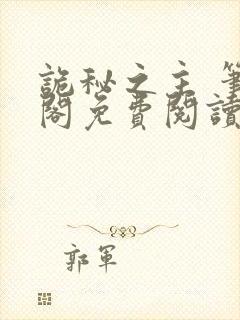 詭秘之主 筆
閣免費閱讀
郭軍